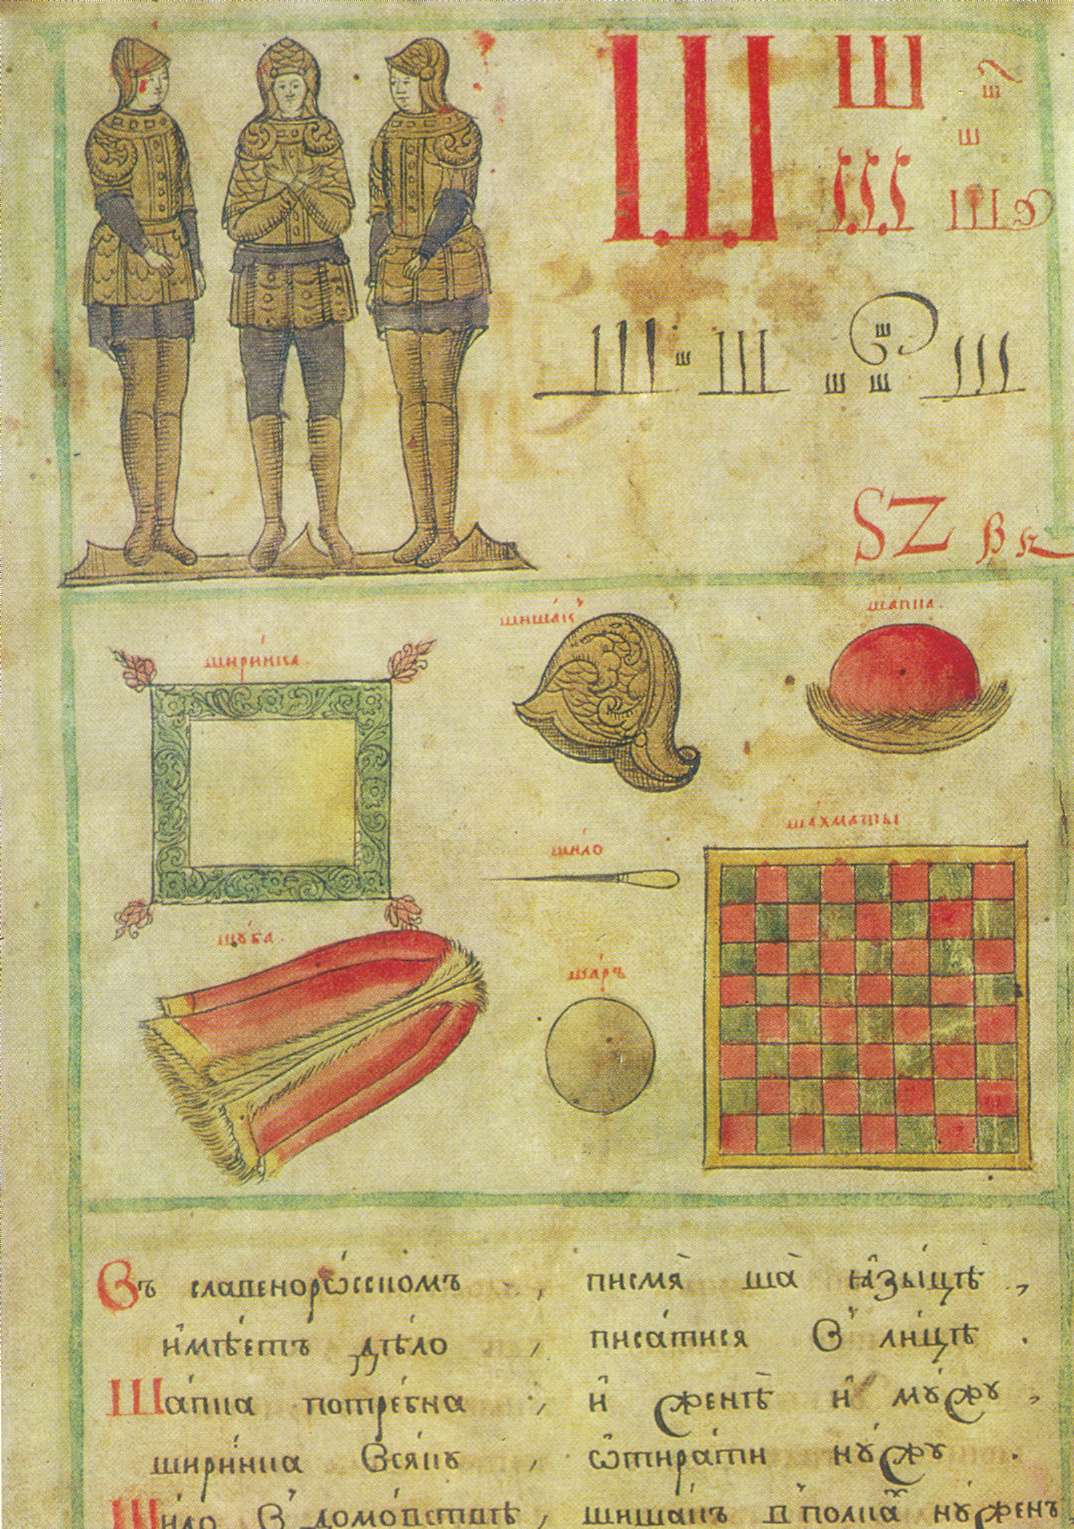 Ш Ш ш
ш
Ш Ш
Ш ш Ш ш ш ш Ш
SZ
ширинка
шишакъ
шапка.
шило
шахматы
шꙋба.
шаръ
Въ славенорѡ́ссїйскомъ , писмѧ̀ ша̀ ꙗ҆зы́цѣ ,
и҆мѣ́етъ дѣ́ло , писа́тисѧ В̾ ли́цѣ .
Ша́пка потре́бна , и҆ женѣ̀ и҆ мꙋ́жꙋ ,
шири́нка Всѧ́кꙋ , ѡ҆тира́ти нꙋ́жꙋ .
Ши́ло В̾ домо́вствѣ , шиша́къ в̾ полка́х нꙋ́женъ